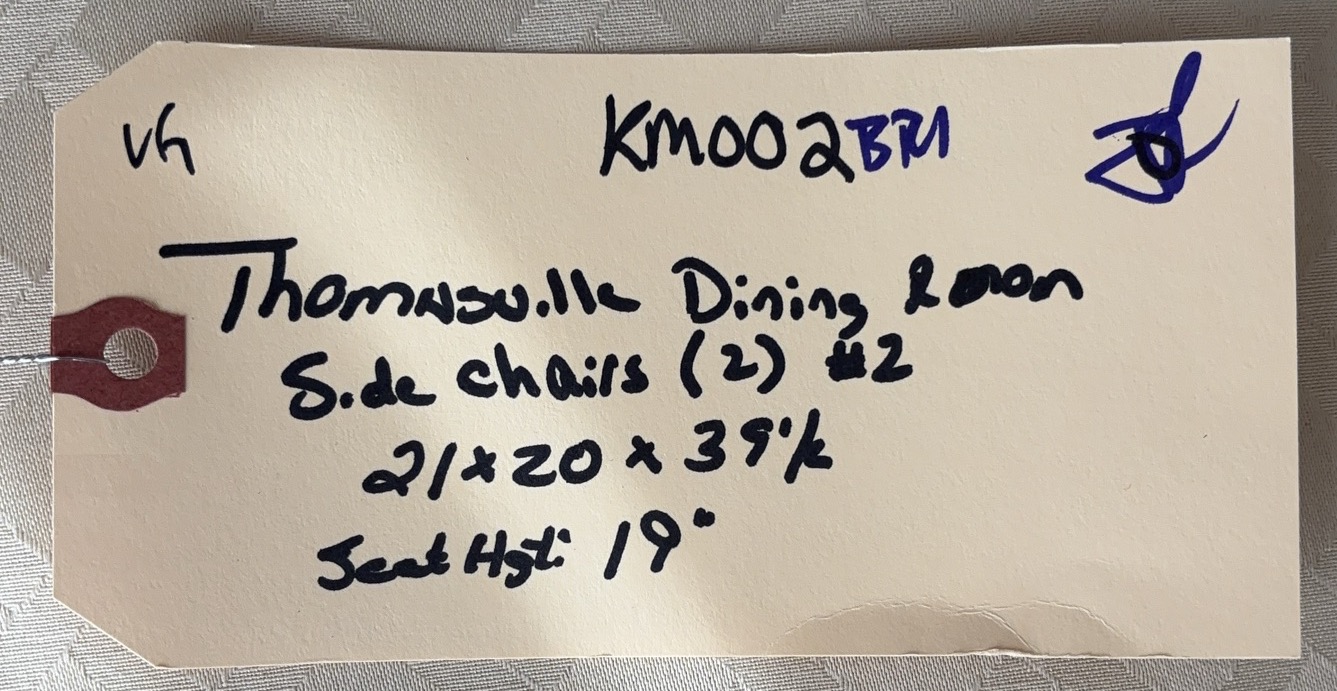 VG KM002BR1
Thomasville Dining Room
Side Chairs (2) #2
21 x 20 x 39 1/2
Seat Hgt: 19"